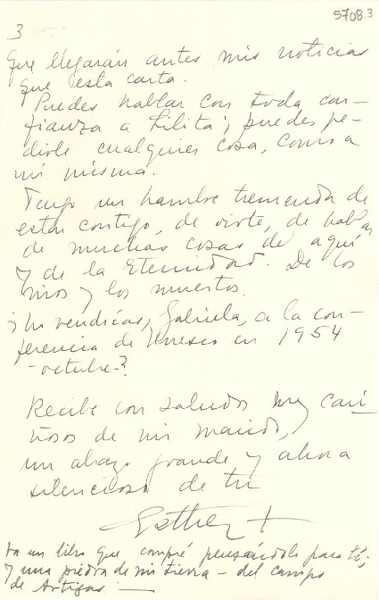 5708.3
3
que llegarán antes mis noticias
que esta carta.
Puedes hablar con toda con-
fianza a Lilita; puedes pe-
dirle cualquier cosa, como a
mí misma.
Tengo un hambre tremenda de
estar contigo, de oirte, de hablar
de muchas cosas de aquí
y de la Eternidad. De los
vivos y los muertos.
¿No vendrías, Gabriela, a la con-
ferencia de Unesco en 1954
-octubre-?
Recibe con saludos muy cari-
ñosos de mi marido,
un abrazo grande y ahora
silencioso de tu
Esther +
Va un libro que compré pensándolo para ti,
y una piedra de mi tierra - del campo
de Artigas. -